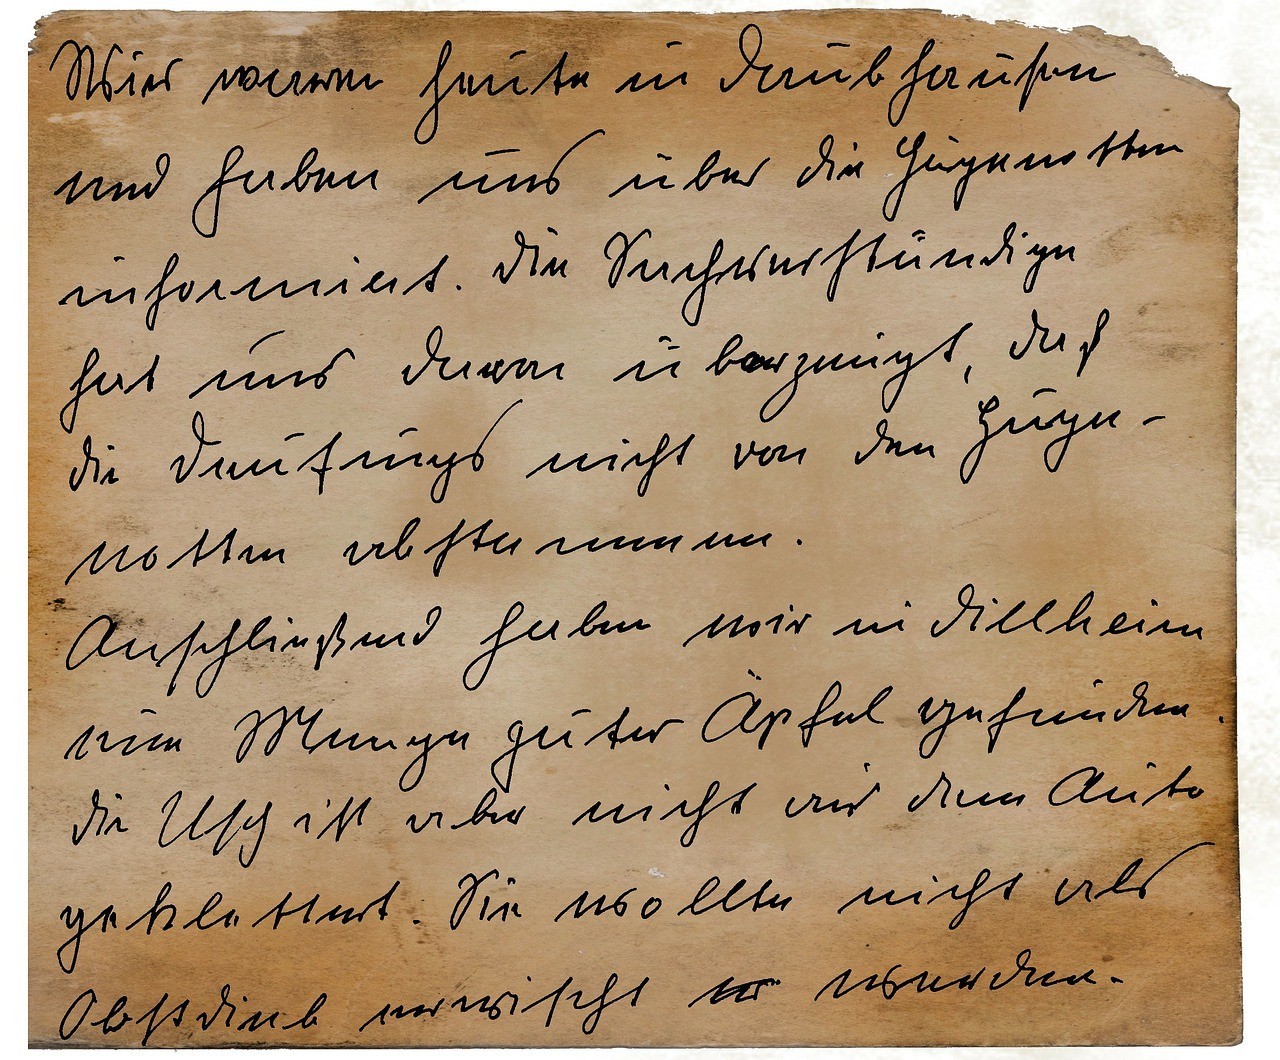 Wir waren heute in Daubhausen
und haben uns über die Hugenotten
informiert. Die Sachverständige
hat uns davon überzeugt, daß
die nicht von den Huge-
notten abstammen.
Anschließend haben wir in Dillheim
eine Menge guter Äpfel gefunden.
die Usch ist aber nicht aus dem Auto
geklettert. Sie wollte nicht als
Obstdieb erwischt werden.